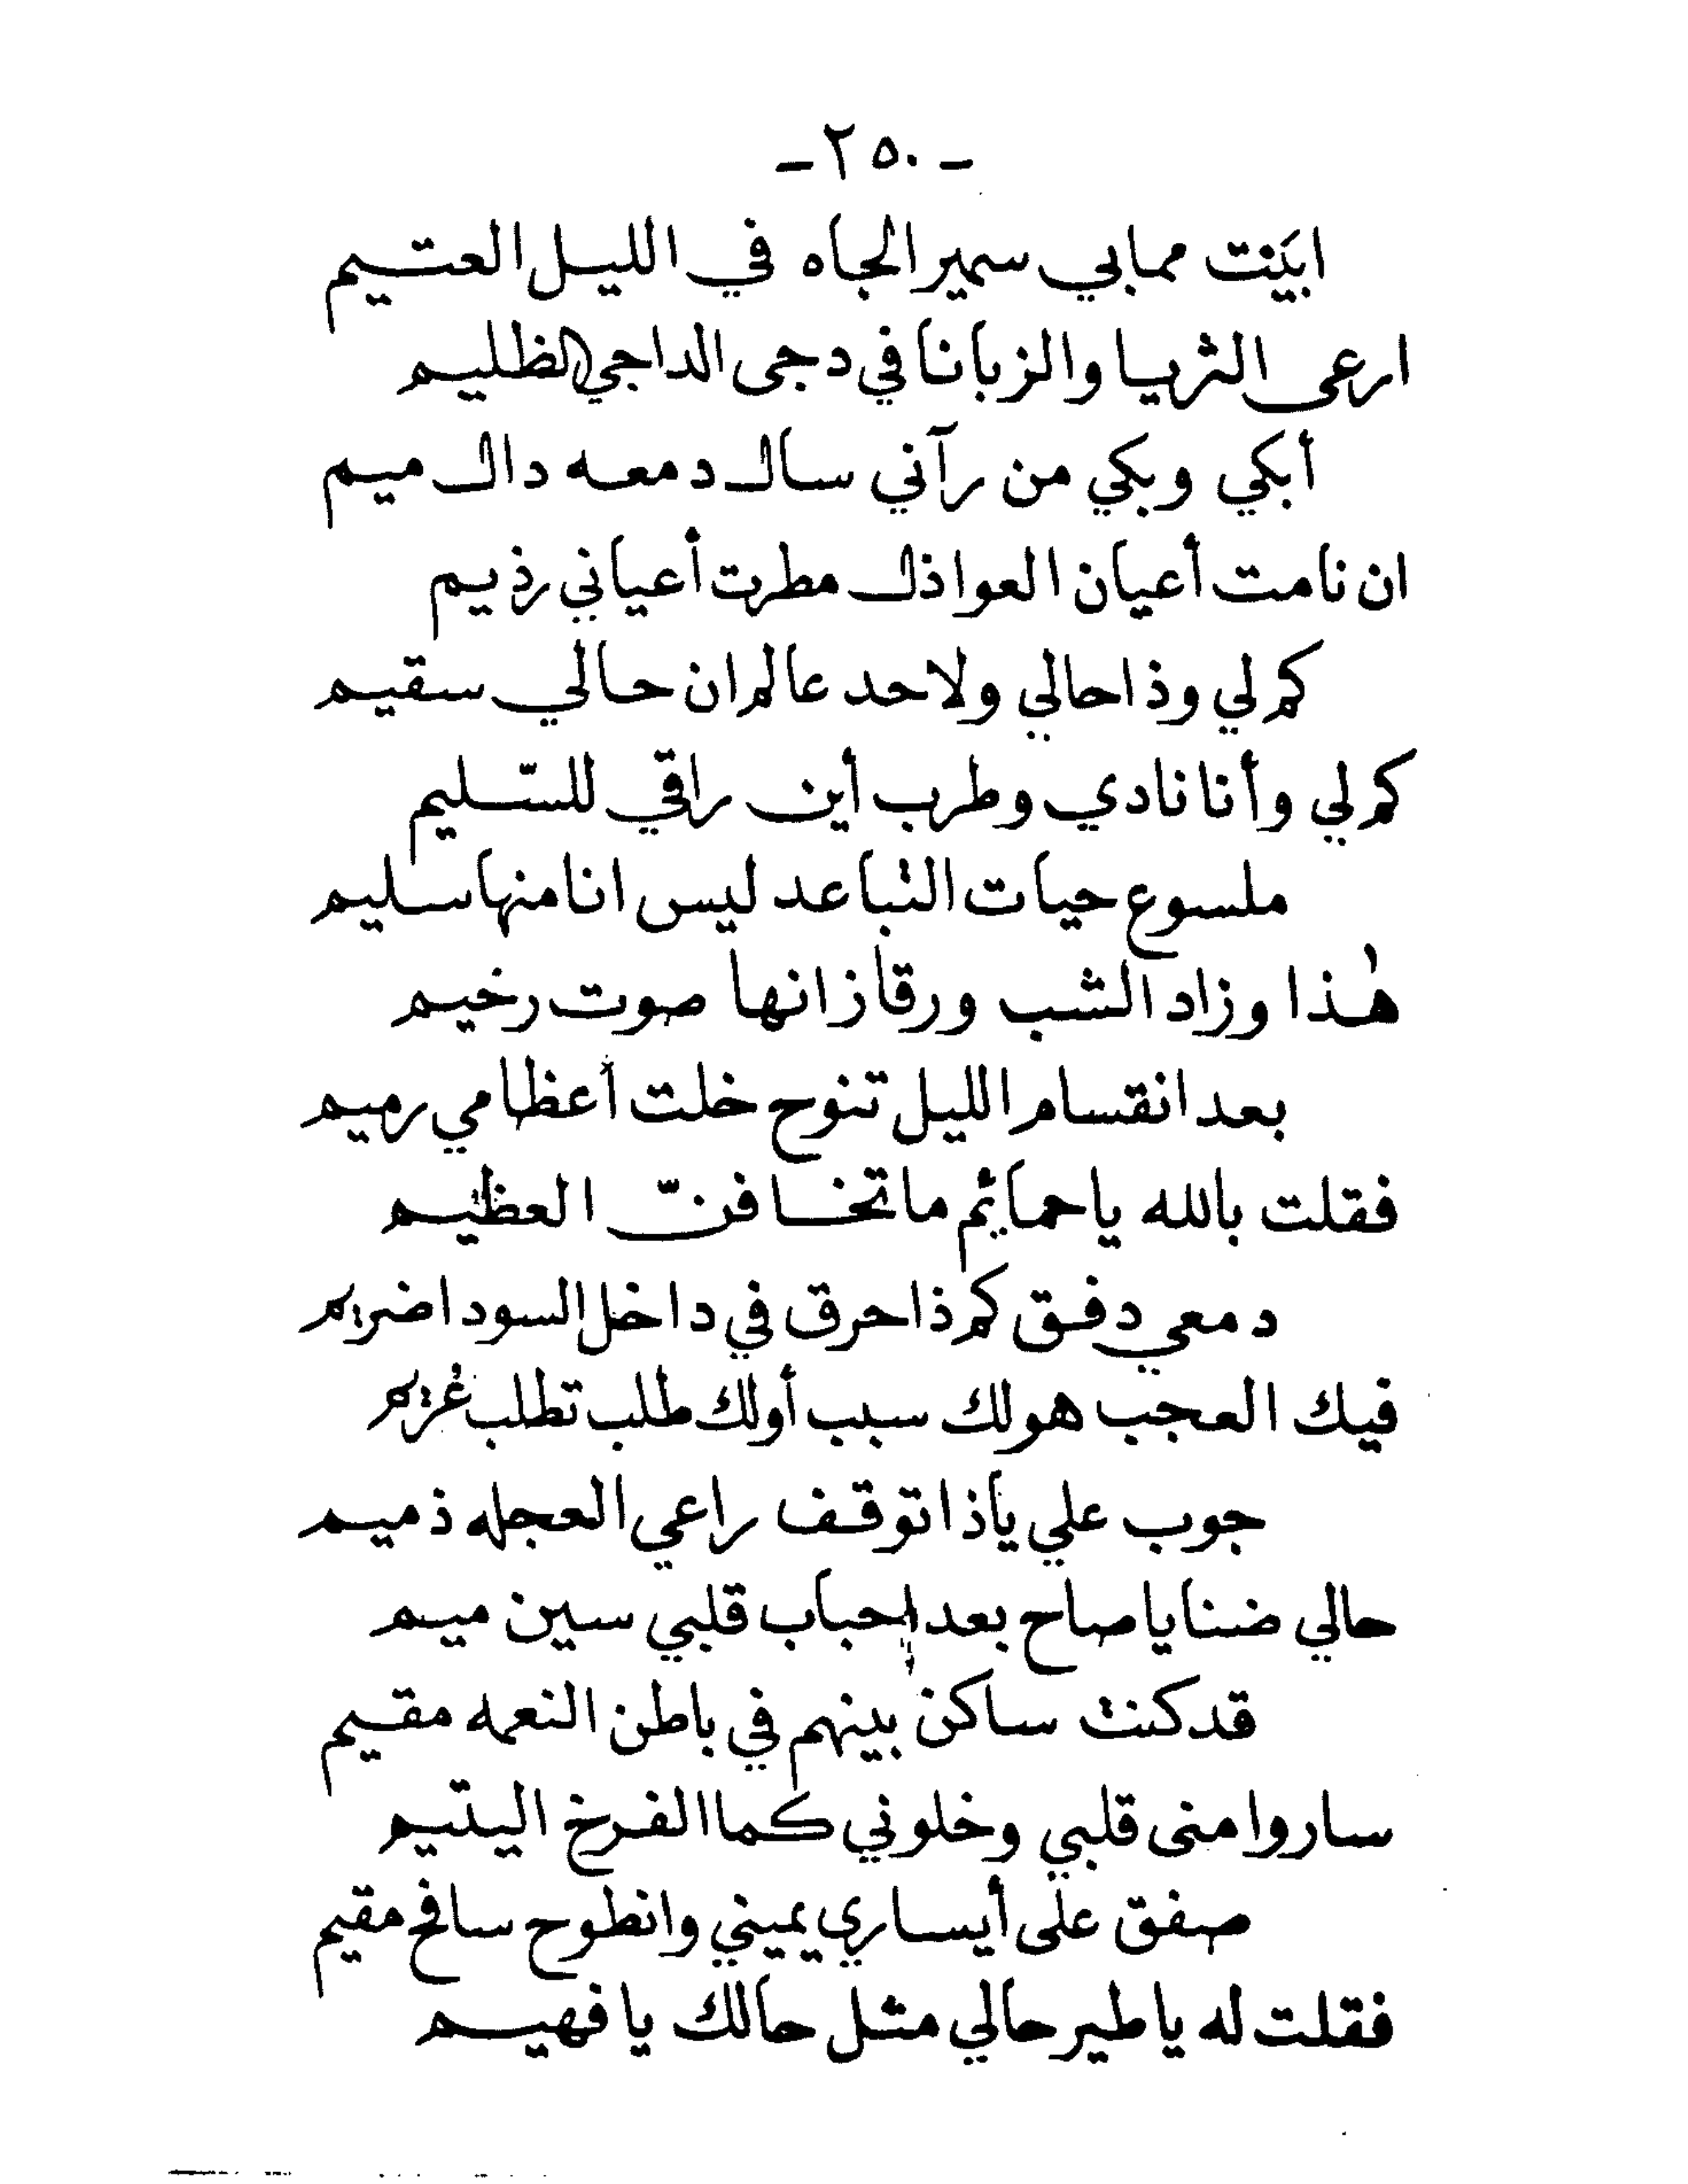 - ٢٥٠ -
ابَيْت ممابي سمير الجاه في الليل العتيم
ارعى الثريا والزبانا في دجى الداجي الظليم
أبكي وبكي من رآني سال دمعه دال ميم
ان نامت أعيان العواذل مطرت أعياني رذيم
كم لي وذا حالي ولاحد عالم ان حالي سقيم
كم لي وأنا نادي وطرب أين راقي للسّليم
ملسوع حيات التباعد ليس انا منها سليم
هٰذا وزاد الشب ورقا زانها صوت رخيم
بعد انقسام الليل تنوح خلت أعظامي رميم
فقلت بالله يا حمائم ما تخافنّ العظيم
دمعي دفق كم ذا حرق في داخل السودا ضريم
فيك العجب هو لك سبب أو لك طلب تطلب غريم
جوب علي ياذا توقف راعي العجله ذميم
حالي ضنا يا صاح بعد احباب قلبي سين ميم
قد كنت ساكن بينهم في باطن النعمه مقيم
ساروا منى قلبي وخلوني كما الفرخ اليتيم
صفق على أيساري يميني وانطوح سافح مقيم
فقلت له يا طير حالي مثل حالك يا فهيم